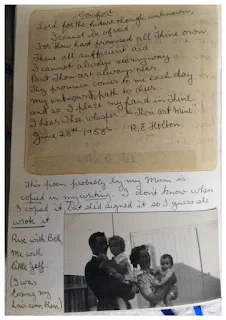 Lord for the future though unknown,
I cannot be afraid
For Thou hast promised all thine own
Thine all sufficient aid
I cannot always see my way
But Thou art always near
Thy promise comes to me each day
My unknown path to cheer.
and as I place my hand in Thine
I hear Thee whisper "Thou art Mine".
June 28th 1958. R.E. Holton
This poem probably by my Mum is
copied in my writing. I dont know when
I copied it but she signed it so I guess she
wrote it
Russ with Beth,
Me with
little Jeff.
(I was
losing my
hair even then)